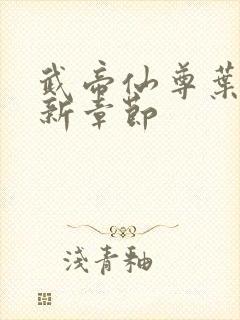 武帝仙尊葉
新章節
淺青釉